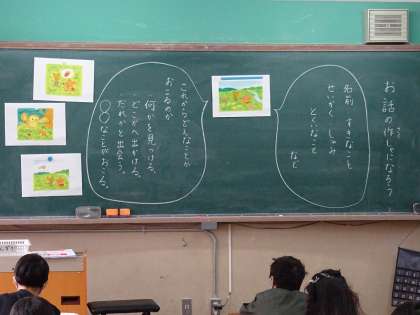 お話の作しゃになろう
名前 すきなこと
せいかく しゅみ
とくいなこと
など
これからどんなことが
おこるのか
何かを見つける。
どこかへ出かける。
だれかと出会う。
○○なことがおこる。